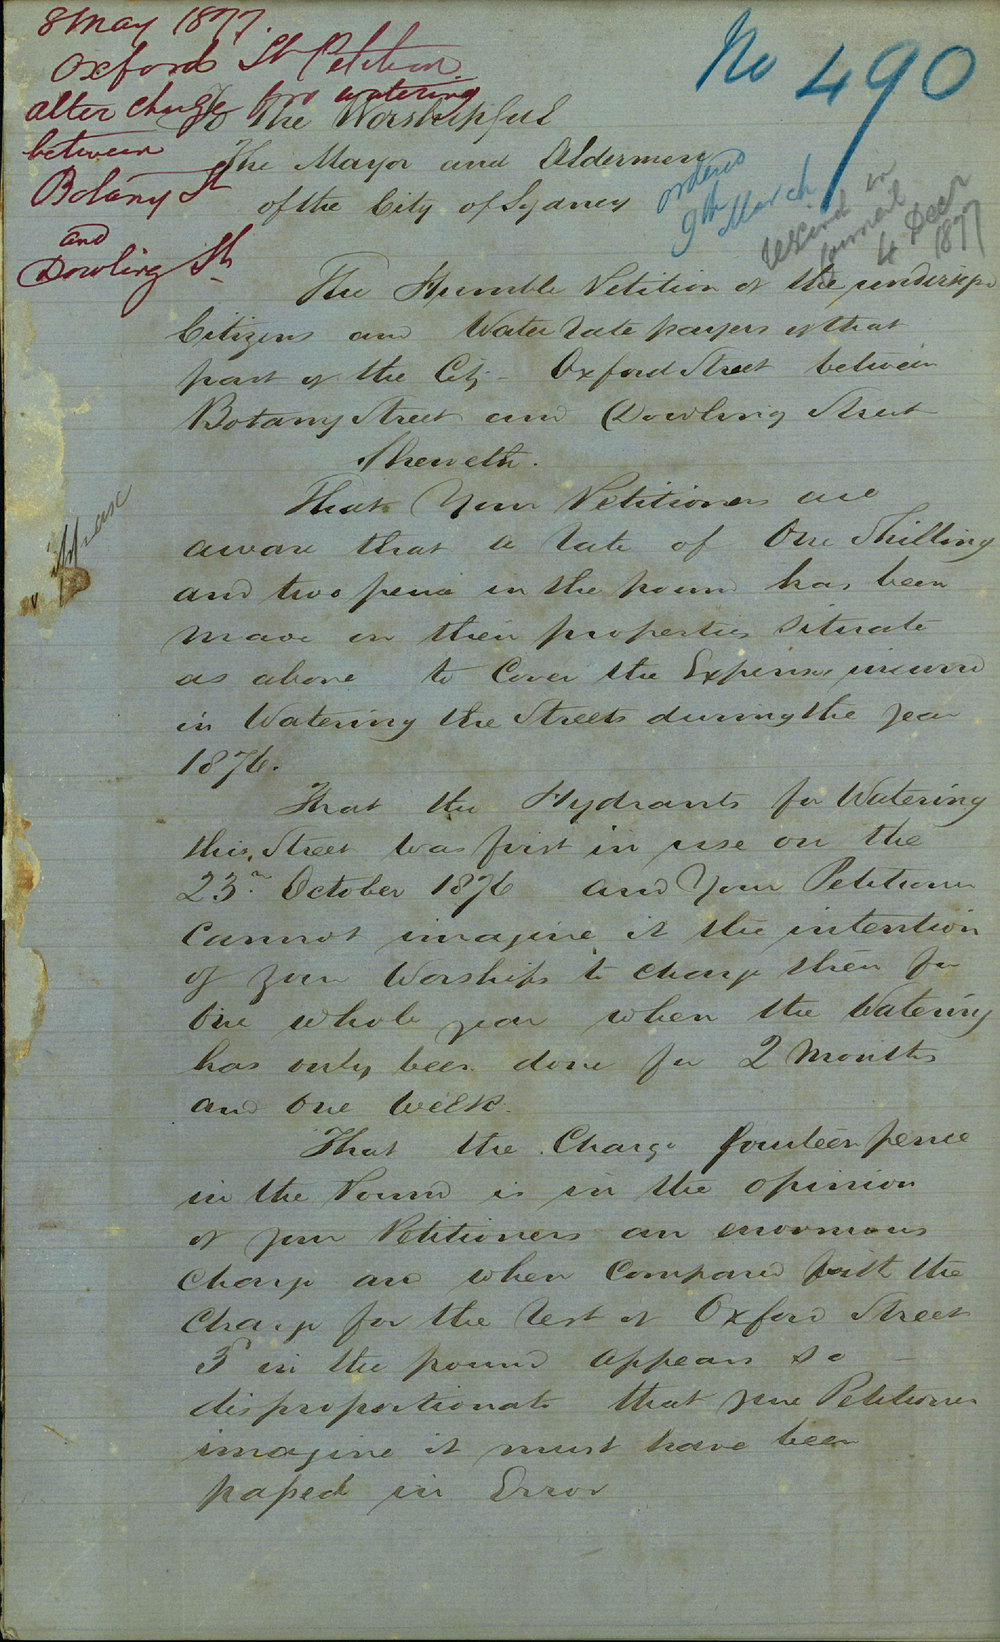 8 May 1877.
Oxford St Petition
alter charge for watering
between
Botany St
and
Dowling St
No 490
ordered
9th March
Rescind in
Council
4 Decr
1877
To The Worshipful
The Mayor and Aldermen
of the City of Sydney
The Humble Petition of the undersigned
Citizens and Water rate payers of that
part of the City - Oxford Street between
Botany Street and Dowling Street
Sheweth.
That Your Petitioners are
aware that a rate of One Shilling
and two pence in the pound has been
made on their properties situate
as above to Cover the Expenses incurred
in Watering the Streets during the year
1876.
That the Hydrants for Watering
this Street was first in use on the
23rd October 1876 and Your Petitioners
Cannot imagine it the intention
of your Worships to charge them for
One whole year when the Watering
has only been done for 2 Months
and One Week.
That the Charge fourteen pence
in the Pound is in the opinion
of your Petitioners an enormous
Charge and when Compared with the
Charge for the rest of Oxford Street
3d in the pound appears so
disproportionate that your Petitioners
imagine it must have been
passed in Error